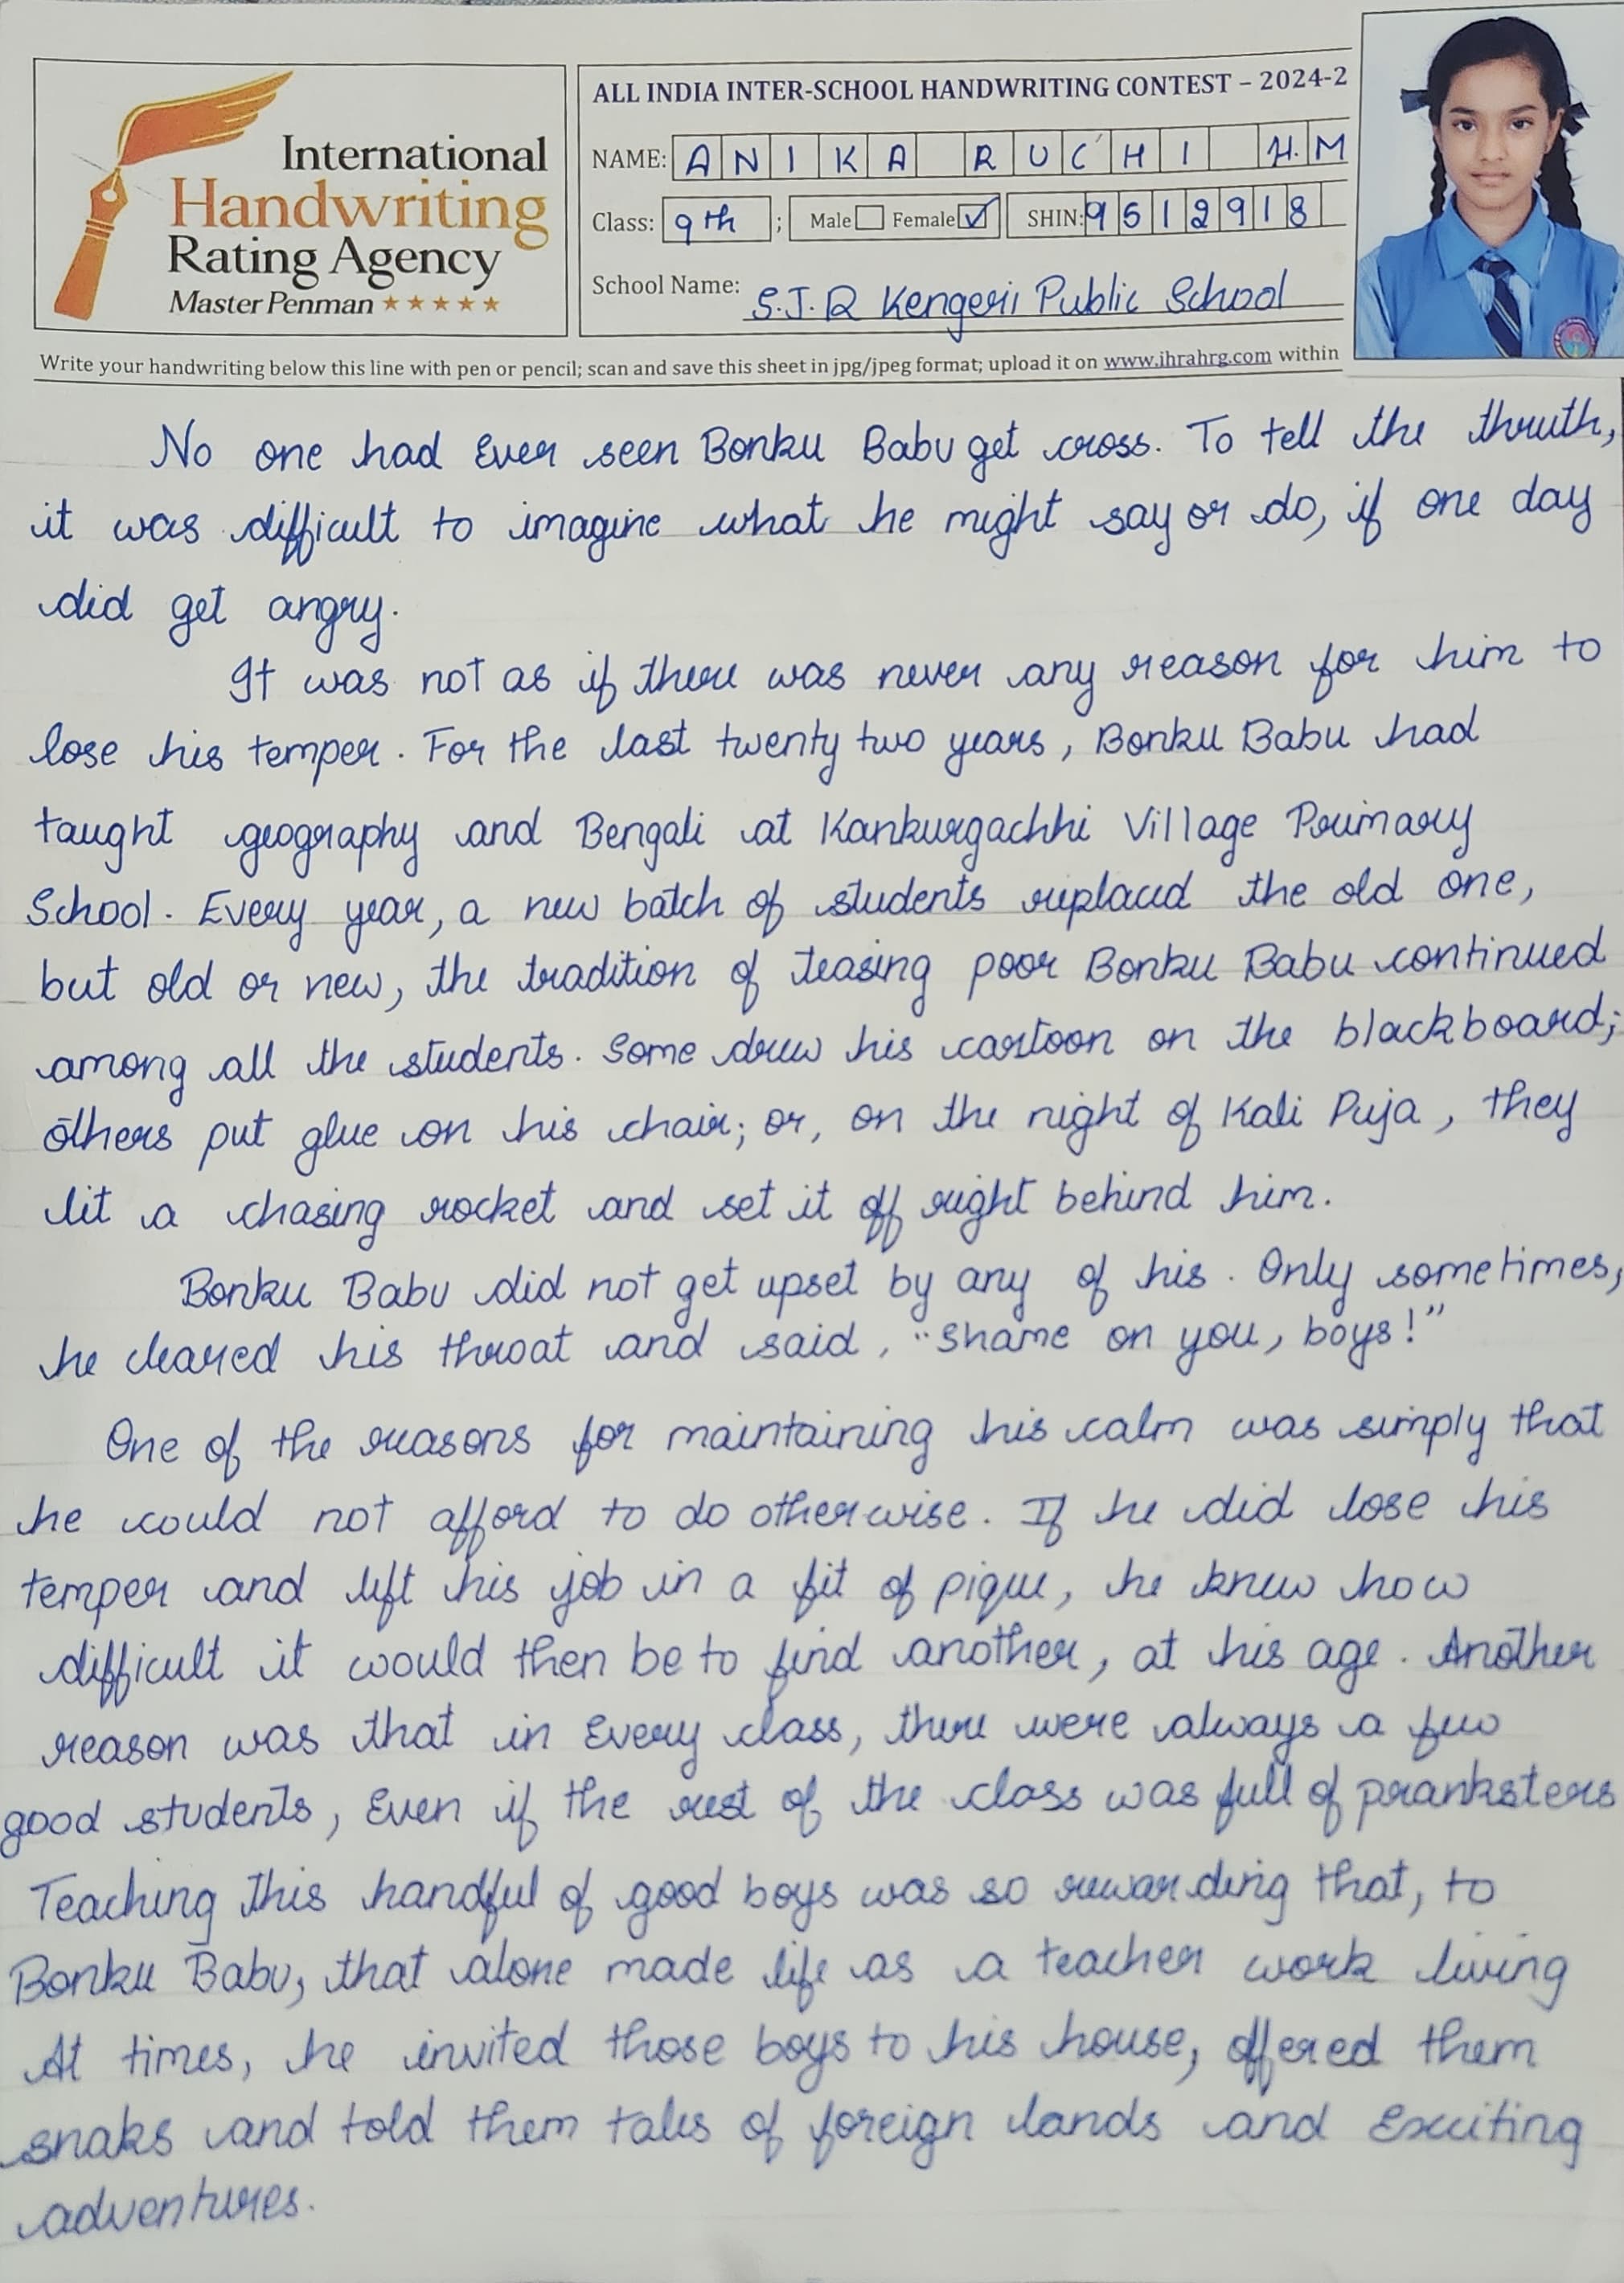 International
Handwriting
Rating Agency
Master Penman
ALL INDIA INTER-SCHOOL HANDWRITING CONTEST – 2024-2
NAME: ANIKA RUCHI H.M
Class: 9th ; Male Female SHIN: 9512918
School Name: S.J.R Kengeri Public School
Write your handwriting below this line with pen or pencil; scan and save this sheet in jpg/jpeg format; upload it on www.ihrahrg.com within
No one had Ever seen Bonku Babu get cross. To tell the thruth,
it was difficult to imagine what he might say or do, if one day
did get angry.
It was not as if there was never any reason for him to
lose his temper. For the last twenty two years, Bonku Babu had
taught geography and Bengali at Kankurgachhi Village Primary
School. Every year, a new batch of students replaced the old one,
but old or new, the tradition of teasing poor Bonku Babu continued
among all the students. Some drew his cartoon on the blackboard;
others put glue on his chair; or, on the night of Kali Puja, they
lit a chasing rocket and set it off right behind him.
Bonku Babu did not get upset by any of his. Only sometimes,
he cleared his throat and said, "Shame on you, boys!"
One of the reasons for maintaining his calm was simply that
he could not afford to do otherwise. If he did lose his
temper and left his job in a fit of pique, he knew how
difficult it would then be to find another, at his age. Another
reason was that in Every class, there were always a few
good students, Even if the rest of the class was full of pranksters
Teaching this handful of good boys was so rewarding that, to
Bonku Babu, that alone made life as a teacher work living
At times, he invited those boys to his house, offered them
snaks and told them tales of foreign lands and Exciting
adventures.